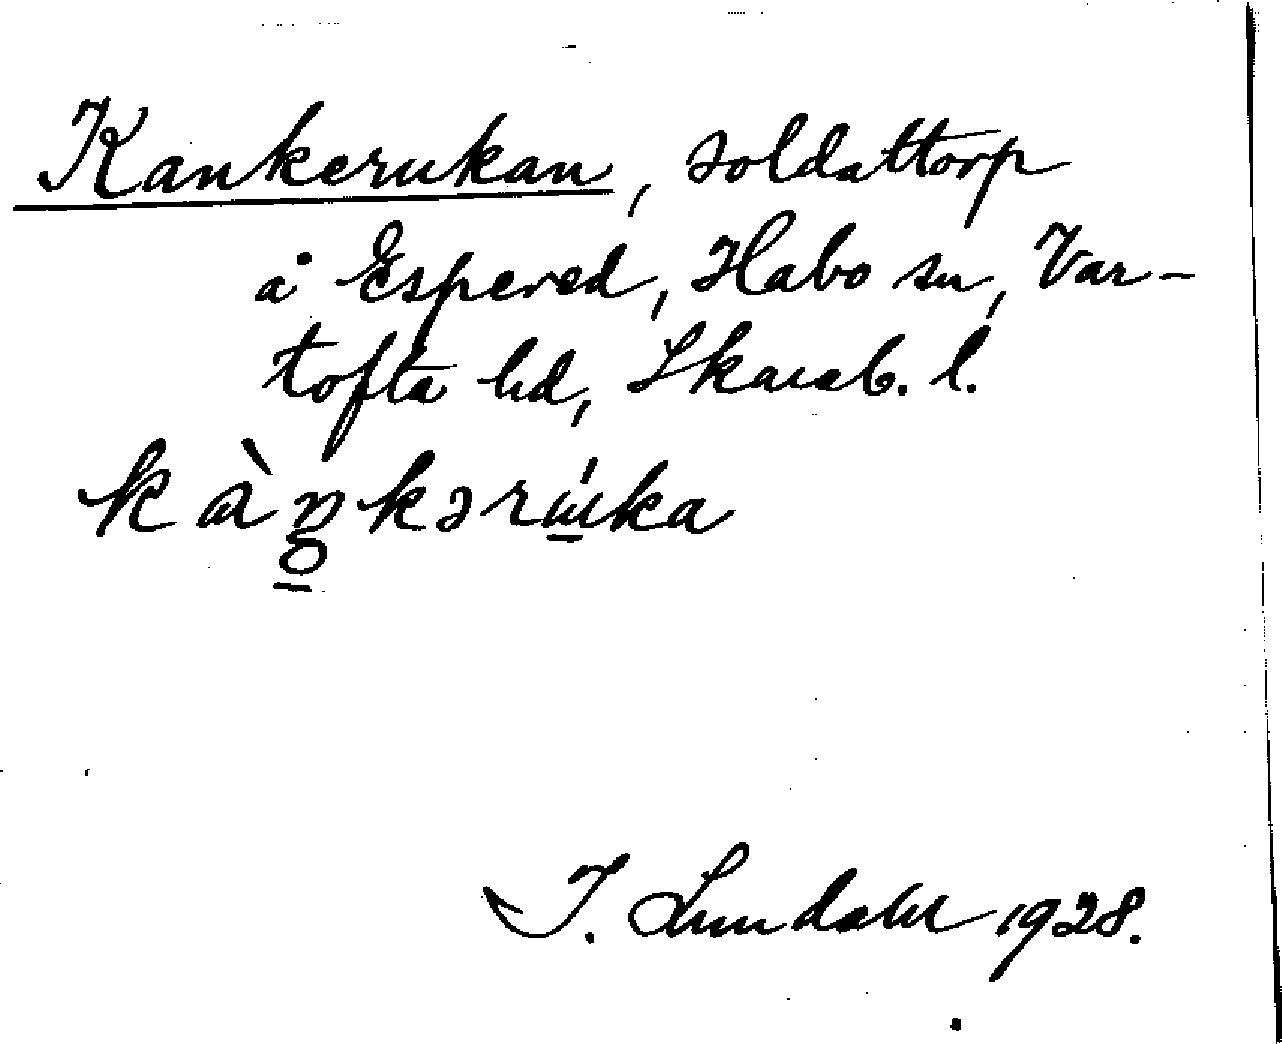 Kankerukan, soldattorp
å Espered, Habo sn, Var-
tofta hd, Skarab. l.
kàŋkərúka
I. Lundahl 1928.